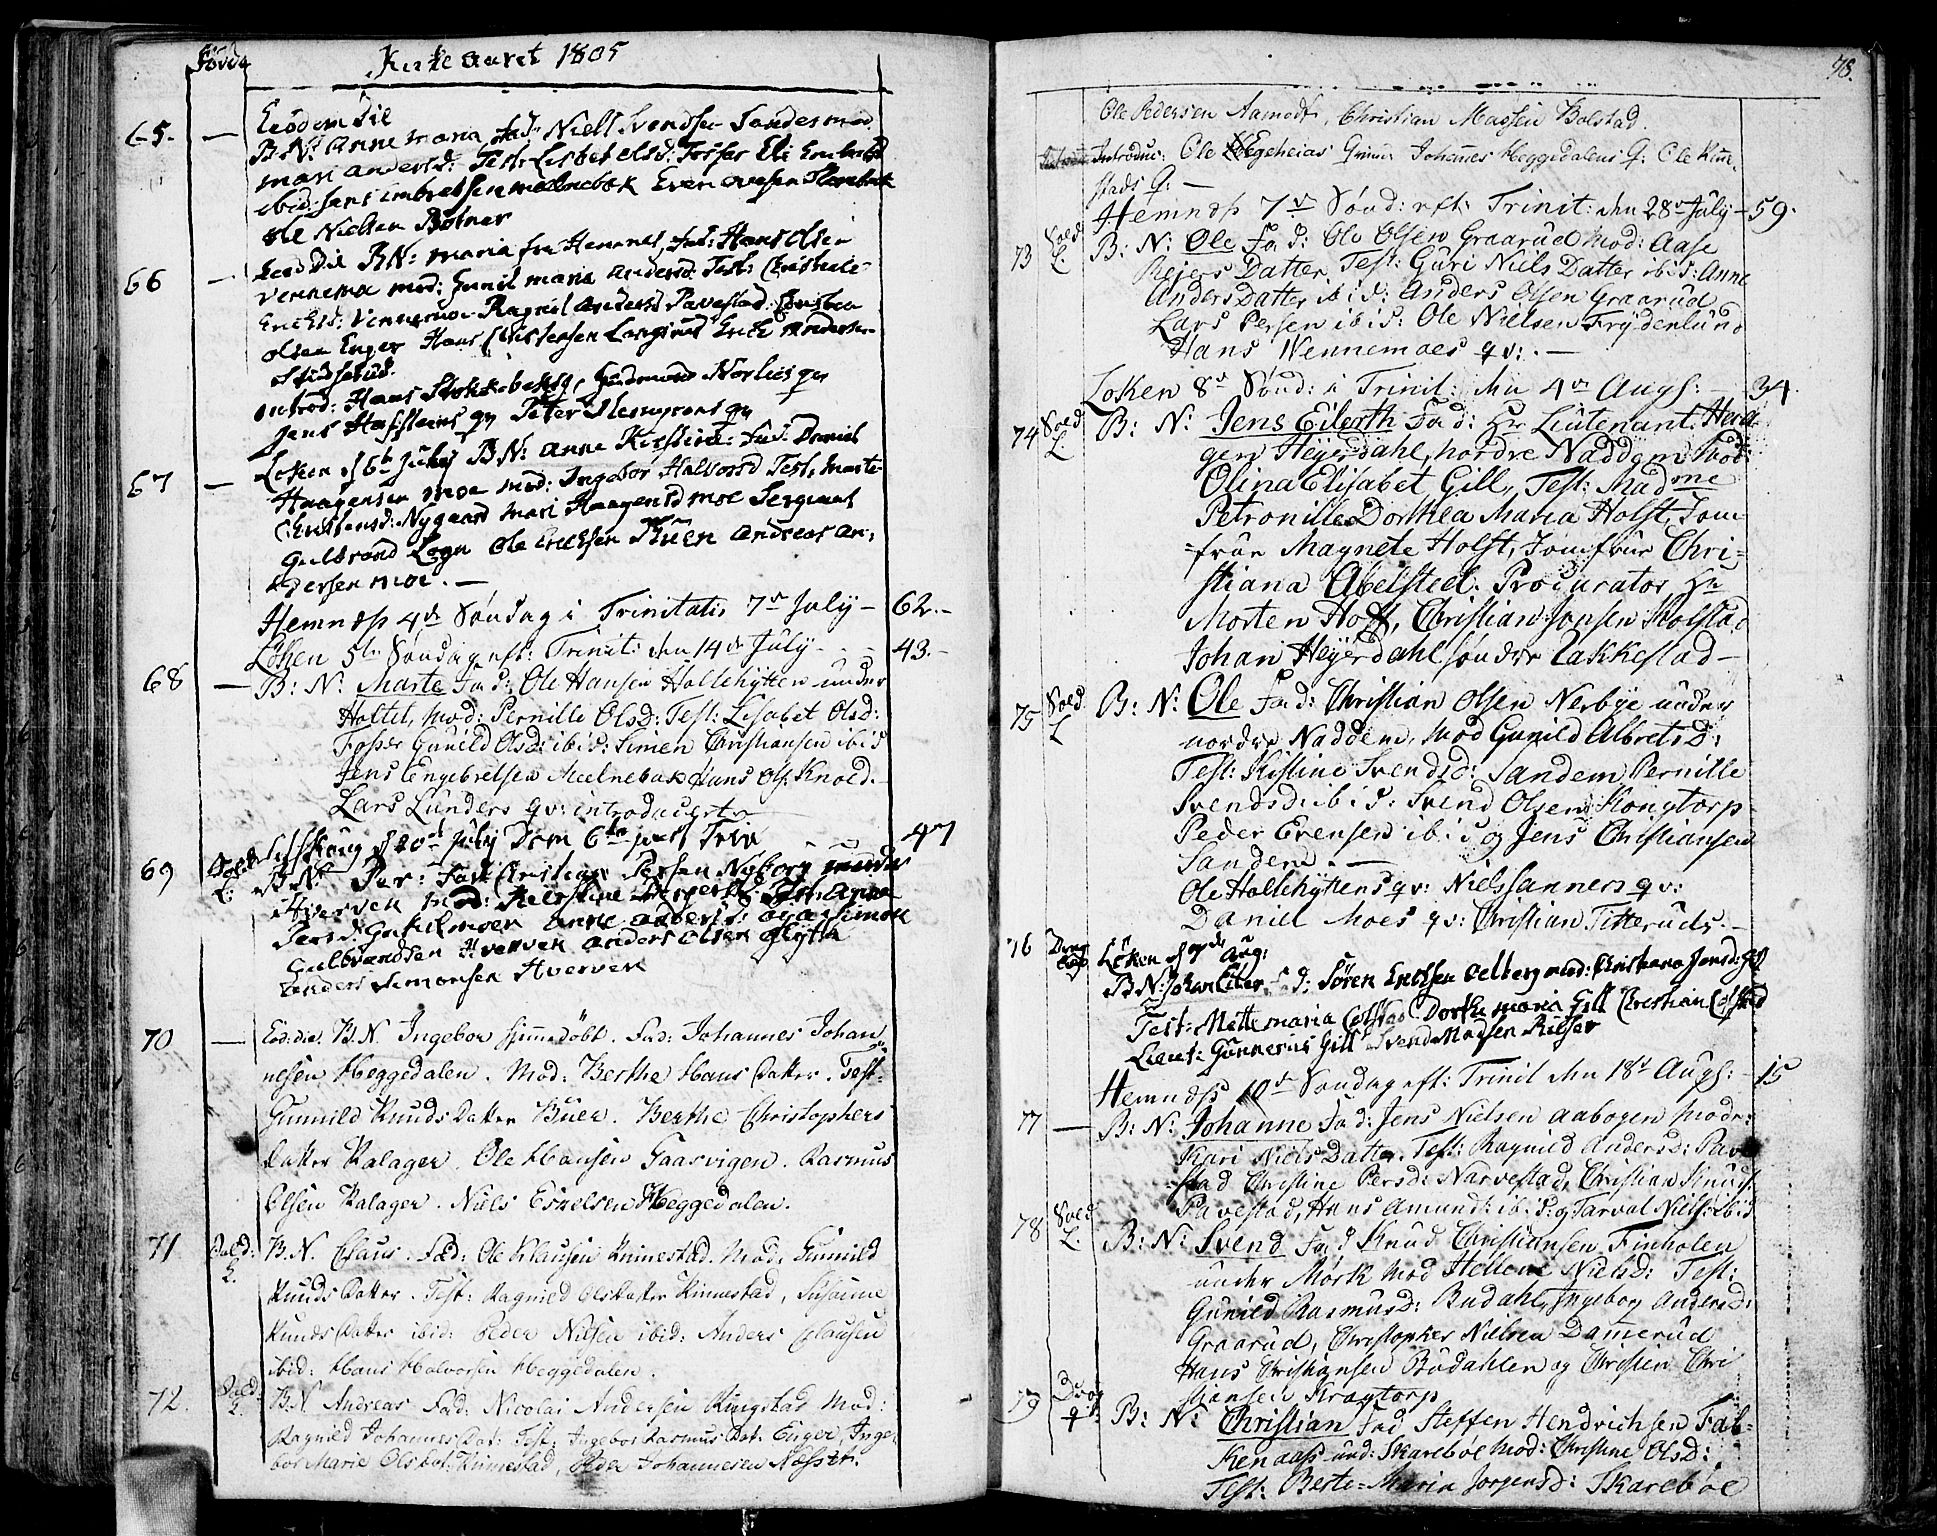 Fødde
Kirke aaret 1805
65. — Eesdem Die
B: N: Anne Maria Fad: Niels Svendsen Sandem mod
mari andersd: Test: Lisbet olsd: Fosser Eli
ibid: Jens Embretsen mælnebæk Even
Ole Nielsen Botner
66 — Eod Die B N: maria fra Hemnes, Fad: Hans olsen
Vennemoe mod: Gunil maria andersd Test: Christine
Ericksd: Vennemoe Ragnil andersd Pavestad
olsen Enger Hans Christensen Langrud Erick
introd: Hans Stokkebeks q, Gudmund Norlies qv
Jens Hafsteens qv Peter qv
67 — Løken d 6te July B N: Anne Kirstine: Fad: Daniel
Haagensen moe mod: Ingebor Halvorsd Test: Marte
Christensd: Nygaard Mari Haagensd moe Sergeant
Gulbrand Logn Ole Ericksen Andreas An-
dersen moe. —
Hemness 4de Søndag i Trinitatis 7de July — 62. —
Løken 5te Søndag eft: Trinit: den 14de July - - - 43. —
68 — B: N: Marte Fad: Ole Hansen Hallehytten under
Holtet, Mod: Pernille Olsd: Test: Lisabet Olsd:
Fosser Gunild Olsd: ibid: Simen Christiansen ibid
Jens Engebretsen Mælnebæk Hans Ols: Knold.
Lars Lunders qv: introducert
d 20de July Dom 6te post Trin 47
69 Sold: L: B N: Per: Fad Christian Persen Nyborg under
Hverven mod: Kierstine Test: Anne
Persd: Gukilmoen Anne
Gulbrandsen Hverven Anders Olsen
Anders Simonsen Hverven
70 — Eod: die. B. N. Ingebor hjemedøbt. Fad: Johannes Johan-
nesen Heggedalen. Mod: Berthe Hans Datter. Test:
Gunnild Knuds Datter Buer. Berthe Christophers
Datter Kalager. Ole Hansen Taasvigen. Rasmus
Olsen Kalager. Niels Eskelsen Heggedalen.
71 Sold: L. B. N. Claus. Fad: Ole Klausen Kinnestad. Mod: Gunnild
Knuds Datter. Test: Ragnild Ols Datter Kinnestad, Susanne
Knuds Datter ibid: Peder Nilsen ibid: Anders Clausen
ibid: Hans Halvorsen Heggedalen.
72. Sold: L. B. N. Andreas Fad: Nicolai Andersen Ringstad Mod:
Ragnild Johannes Dat: Test: Ingebor Rasmus Dat: Enger, Inge-
bor Marie Ols Dat: Kinnestad, Peder Johannesen Næsset.
78.
Ole Pedersen Aamodt, Christian Madsen Bolstad.
Introduc: Ole Hegeheias Johannes Heggedalens Q: Ole Kinne-
stads Q: —
Hemness 7de Sønd: eft: Trinit: den 28de July — 59.
73 Sold L. B: N: Ole Fad: Ole Olsen Graarud Mod: Aase
Rejers Datter Test: Guri Niels Datter ibid: Anne
Anders Datter ibid: Anders Olsen Graarud
Lars Persen ibid: Ole Nielsen Frydenlund
Hans Wennemoes qv: . —
Løken 8de Sønd: i Trinit: den 4de Augs: — 34.
74 Sold L B: N: Jens Eilerth Fad: Hr Lieutenant Hera-
gen Heyerdahl, nordre Naddem Mod:
Olina Elisabet Gill, Test: Madme
Petronille Dorthea Maria Holst, Jom-
frue Magnete Holst, Jomfrue Chri-
stiana Abelsted. Procurator Hr
Morten Holst, Christian Jonsen Kolstad
Johan Heyerdahl søndre Lakkestad —
75 Sold L B: N: Ole Fad: Christian Olsen Nerbye under
nordre Naddem, Mod Gunild Albretsd:
Test: Kistine Svendsd: Sandem Pernille
Svendsd: ibid: Svend Olsen Kongtorp
Peder Evensen ibid og Jens Christiansen
Sandem. —
Ole Hallehyttens qv: Niels Sanners qv:
Daniel Moes qv: Christian Titteruds. —
76 Løken d 7de Aug:
B N: Johan Fad: Søren Ericksen Aelberg mod: Christiana Jensd: Gill
Test: Mette maria Dorthe maria Gill Christian
Lieut: Gunnerus Gill Svend Madsen Riiser
Hemness 10de Søndag eft: Trinit den 18de Augs: — 15
77 — B: N: Johanne Fad: Jens Nielsen Aabogen Moder
Kari Niels Datter. Test: Ragnild Andersd: Pave-
stad Christine Persd: Narvestad, Christian Knuds:
Pavestad, Hans Amund: ibid: og Tarval Niels: ibid
78 Sold L. B: N: Svend Fad Knud Christiansen Finholen
under Mork Mod Hellene Nielsd: Test:
Gunild Rasmusd: Budahl, Ingeborg Andersd:
Graarud, Christopher Nielsen Dammerud
Hans Christiansen Budahlen og Christen Chri-
stiansen Krogtorp
79 B: N: Christian Fad Steffen Hendrichsen Fal-
kenaas und: Skarebøl Mod: Christine Olsd:
Test: Berte Maria Jorgensd: Skarebøl